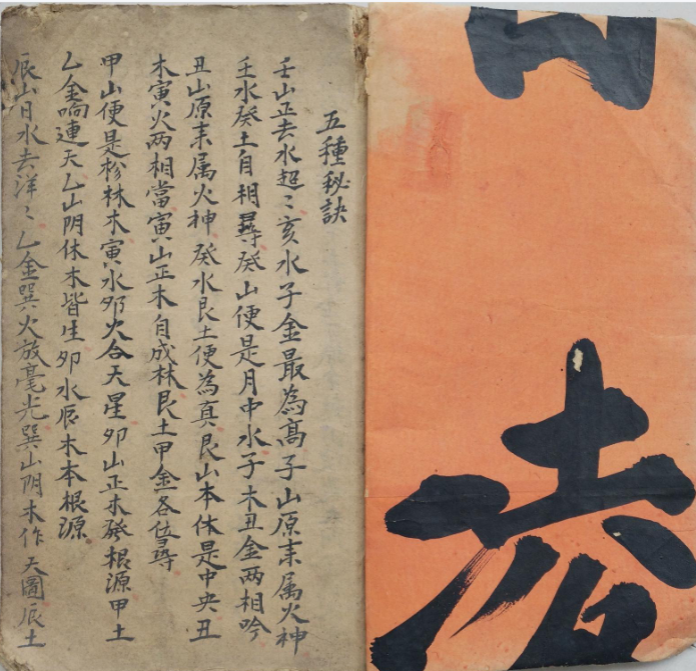 五種秘訣
壬山正去水超〻亥水子金最為高子山原来属火神
壬水癸土自相尋癸山便是月中水子木丑金两相吟
丑山原来属火神癸水艮土便為真艮山本体是中央丑
木寅火两相當寅山正木自成林艮土甲金各位尋
甲山便是杉林木寅水卯火合天星卯山正木發根源甲土
乙金响連天乙山阴休木皆生卯水辰木本根源
辰山日水去洋〻乙金巽火放毫光巽山阴木作天圖辰土